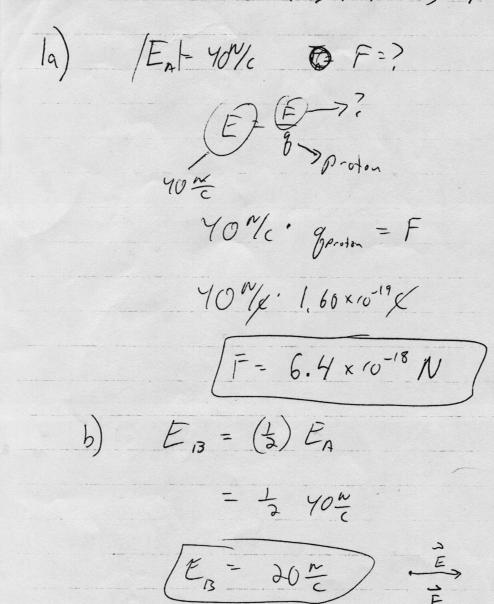 1a) |E_A| = 40 N/C F = ?
E = F/q → ?
→ proton
40 N/C
40 N/C · q_proton = F
40 N/C · 1.60 × 10⁻¹⁹ C
F = 6.4 × 10⁻¹⁸ N
b) E_B = (1/2) E_A
= 1/2 40 N/C
E_B = 20 N/C
E⃗
F⃗